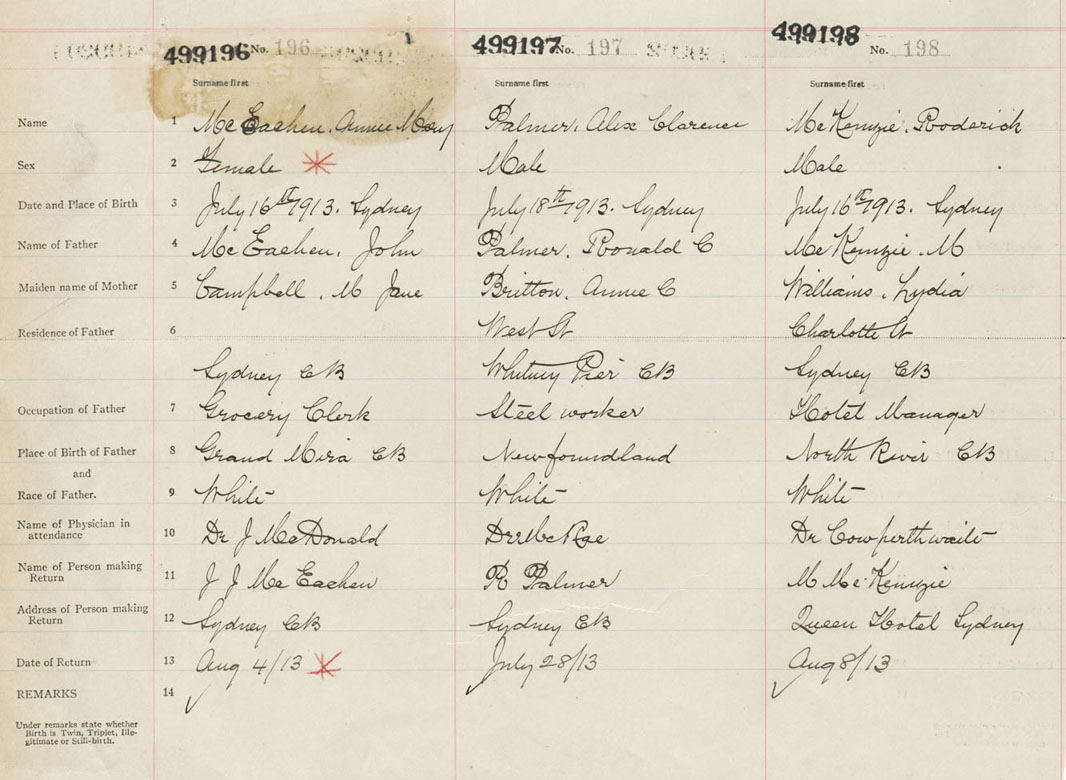 499196 No. 196 499197 No. 197 499198 No. 198
Surname first Surname first Surname first
Name 1 McEachen, Annie Mary Palmer, Alex Clarence McKenzie, Roderick
Sex 2 Female Male Male
Date and Place of Birth 3 July 16th 1913. Sydney July 18th 1913. Sydney July 16th 1913. Sydney
Name of Father 4 McEachen, John Palmer, Ronald C McKenzie, M
Maiden name of Mother 5 Campbell, M Jane Britton, Annie C Williams, Lydia
Residence of Father 6 West St Charlotte St
Sydney CB Whitney Pier CB Sydney CB
Occupation of Father 7 Grocery Clerk Steel worker Hotel Manager
Place of Birth of Father 8 Grand Mira CB Newfoundland North River CB
and
Race of Father. 9 White White White
Name of Physician in
attendance 10 Dr J McDonald Dr McRae Dr Cowperthwaite
Name of Person making
Return 11 J J McEachen R Palmer M McKenzie
Address of Person making
Return 12 Sydney CB Sydney CB Queen Hotel Sydney
Date of Return 13 Aug 4/13 July 28/13 Aug 8/13
REMARKS 14
Under remarks state whether
Birth is Twin, Triplet, Ille-
gitimate or Still-birth.